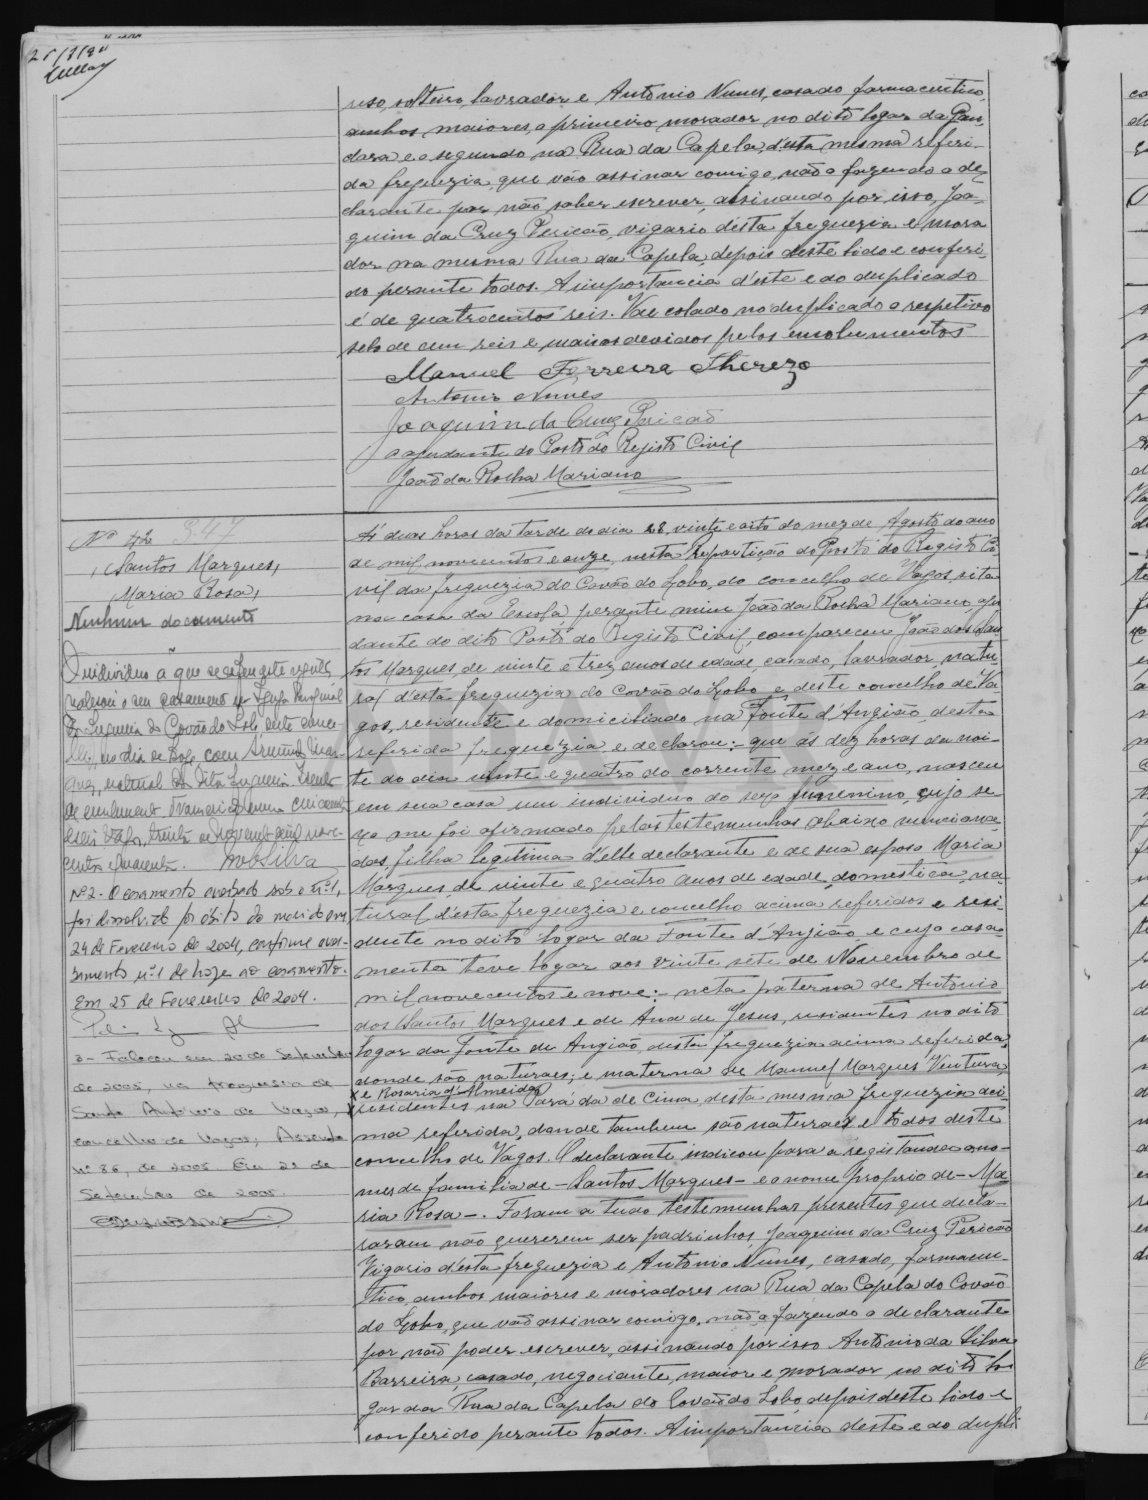 reso, solteiro, lavrador e Antonio Nunes, casado farmaceutico,
ambos maiores, o primeiro morador no dito logar da Gan-
dara e o segundo na Rua da Capela, d'esta mesma referi-
da freguezia, que vão assinar comigo, não o fazendo o de-
clarante por não saber escrever, assinando por isso, Joa-
quim da Cruz Pericão, vigario d'esta freguezia e mora
dor na mesma Rua da Capela, depois deste lido e conferi-
do perante todos. A importancia d'este e do duplicado
é de quatrocentos reis. Vae colado no duplicado o respetivo
selo de cem reis e mais os devidos pelos emolumentos
Manuel Ferreira Therezo
Antonio Nunes
Joaquim da Cruz Pericão
O ajudante do Posto do Registo Civil
João da Rocha Mariano
Nº 42 347
Santos Marques,
Maria Rosa,
Nenhum documento
O individuo a que se refere este registo
realizou o seu casamento na Igreja Paroquial
da freguesia de Covão do Lobo, deste conce-
lho, no dia de hoje com
natural da dita freguesia
de novembro mil nove-
centos e quarenta. Silva
Nº 2 - O casamento averbado sob o nº 1,
foi dissolvido por óbito do marido em
24 de Fevereiro de 2004, conforme aver-
bamento nº 1 de hoje ao casamento.
Em 25 de Fevereiro de 2004.
3 - Faleceu em 20 de Setembro
de 2005, na freguesia de
Santo António de Vagos,
concelho de Vagos, Assento
nº 86, de 2005. Em 21 de
Setembro de 2005.
A's duas horas da tarde do dia 28, vinte e oito do mez de Agosto do ano
de mil novecentos e onze, nesta repartição do Posto do Registo Ci-
vil da freguezia do Covão do Lobo, do concelho de Vagos, sita
na casa da Escola, perante mim João da Rocha Mariano aju
dante do dito Posto do Registo Civil, compareceu João dos San
tos Marques, de vinte e trez anos de edade, casado, lavrador, natu-
ral d'esta freguezia do Covão do Lobo e deste concelho de Va
gos, residente e domiciliado na Fonte d'Angião desta
referida freguezia e declarou: - que ás dez horas da noi-
te do dia vinte e quatro do corrente mez e ano, nasceu
em sua casa um individuo do sexo femenino, cujo se
xo me foi afirmado pelas testemunhas abaixo menciona-
das, filha legitima d'elle declarante e de sua esposa Maria
Marques, de vinte e quatro anos de edade, domestica, na-
tural d'esta freguezia e concelho acima referidos e resi-
dente no dito logar da Fonte d'Angião e cujo casa-
mento teve logar aos vinte sete de Novembro de
mil novecentos e nove: - neta paterna de Antonio
dos Santos Marques e de Ana de Jesus, residentes no dito
logar da Fonte de Angião, desta freguezia acima referida,
donde são naturaes; e materna de Manuel Marques Ventura,
x e Rosaria d'Almeida
x residentes na Parada de Cima, desta mesma freguezia aci-
ma referida, donde tambem são naturaes e todos deste
concelho de Vagos. O declarante indicou para a registanda o no-
mes de familia de - Santos Marques - e o nome proprio de - Ma
ria Rosa -. Foram a tudo testemunhas presentes que decla-
raram não quererem ser padrinhos, Joaquim da Cruz Pericão
Vigario d'esta freguezia e Antonio Nunes, casado, farmaceu-
tico, ambos maiores e moradores na Rua da Capela do Covão
do Lobo, que vão assinar comigo, não o fazendo o declarante
por não poder escrever, assinando por isso Antonio da Silva
Barreira, casado, negociante, maior e morador no dito lo
gar da Rua da Capela do Covão do Lobo, depois deste lido e
conferido perante todos. A importancia deste e do dupli